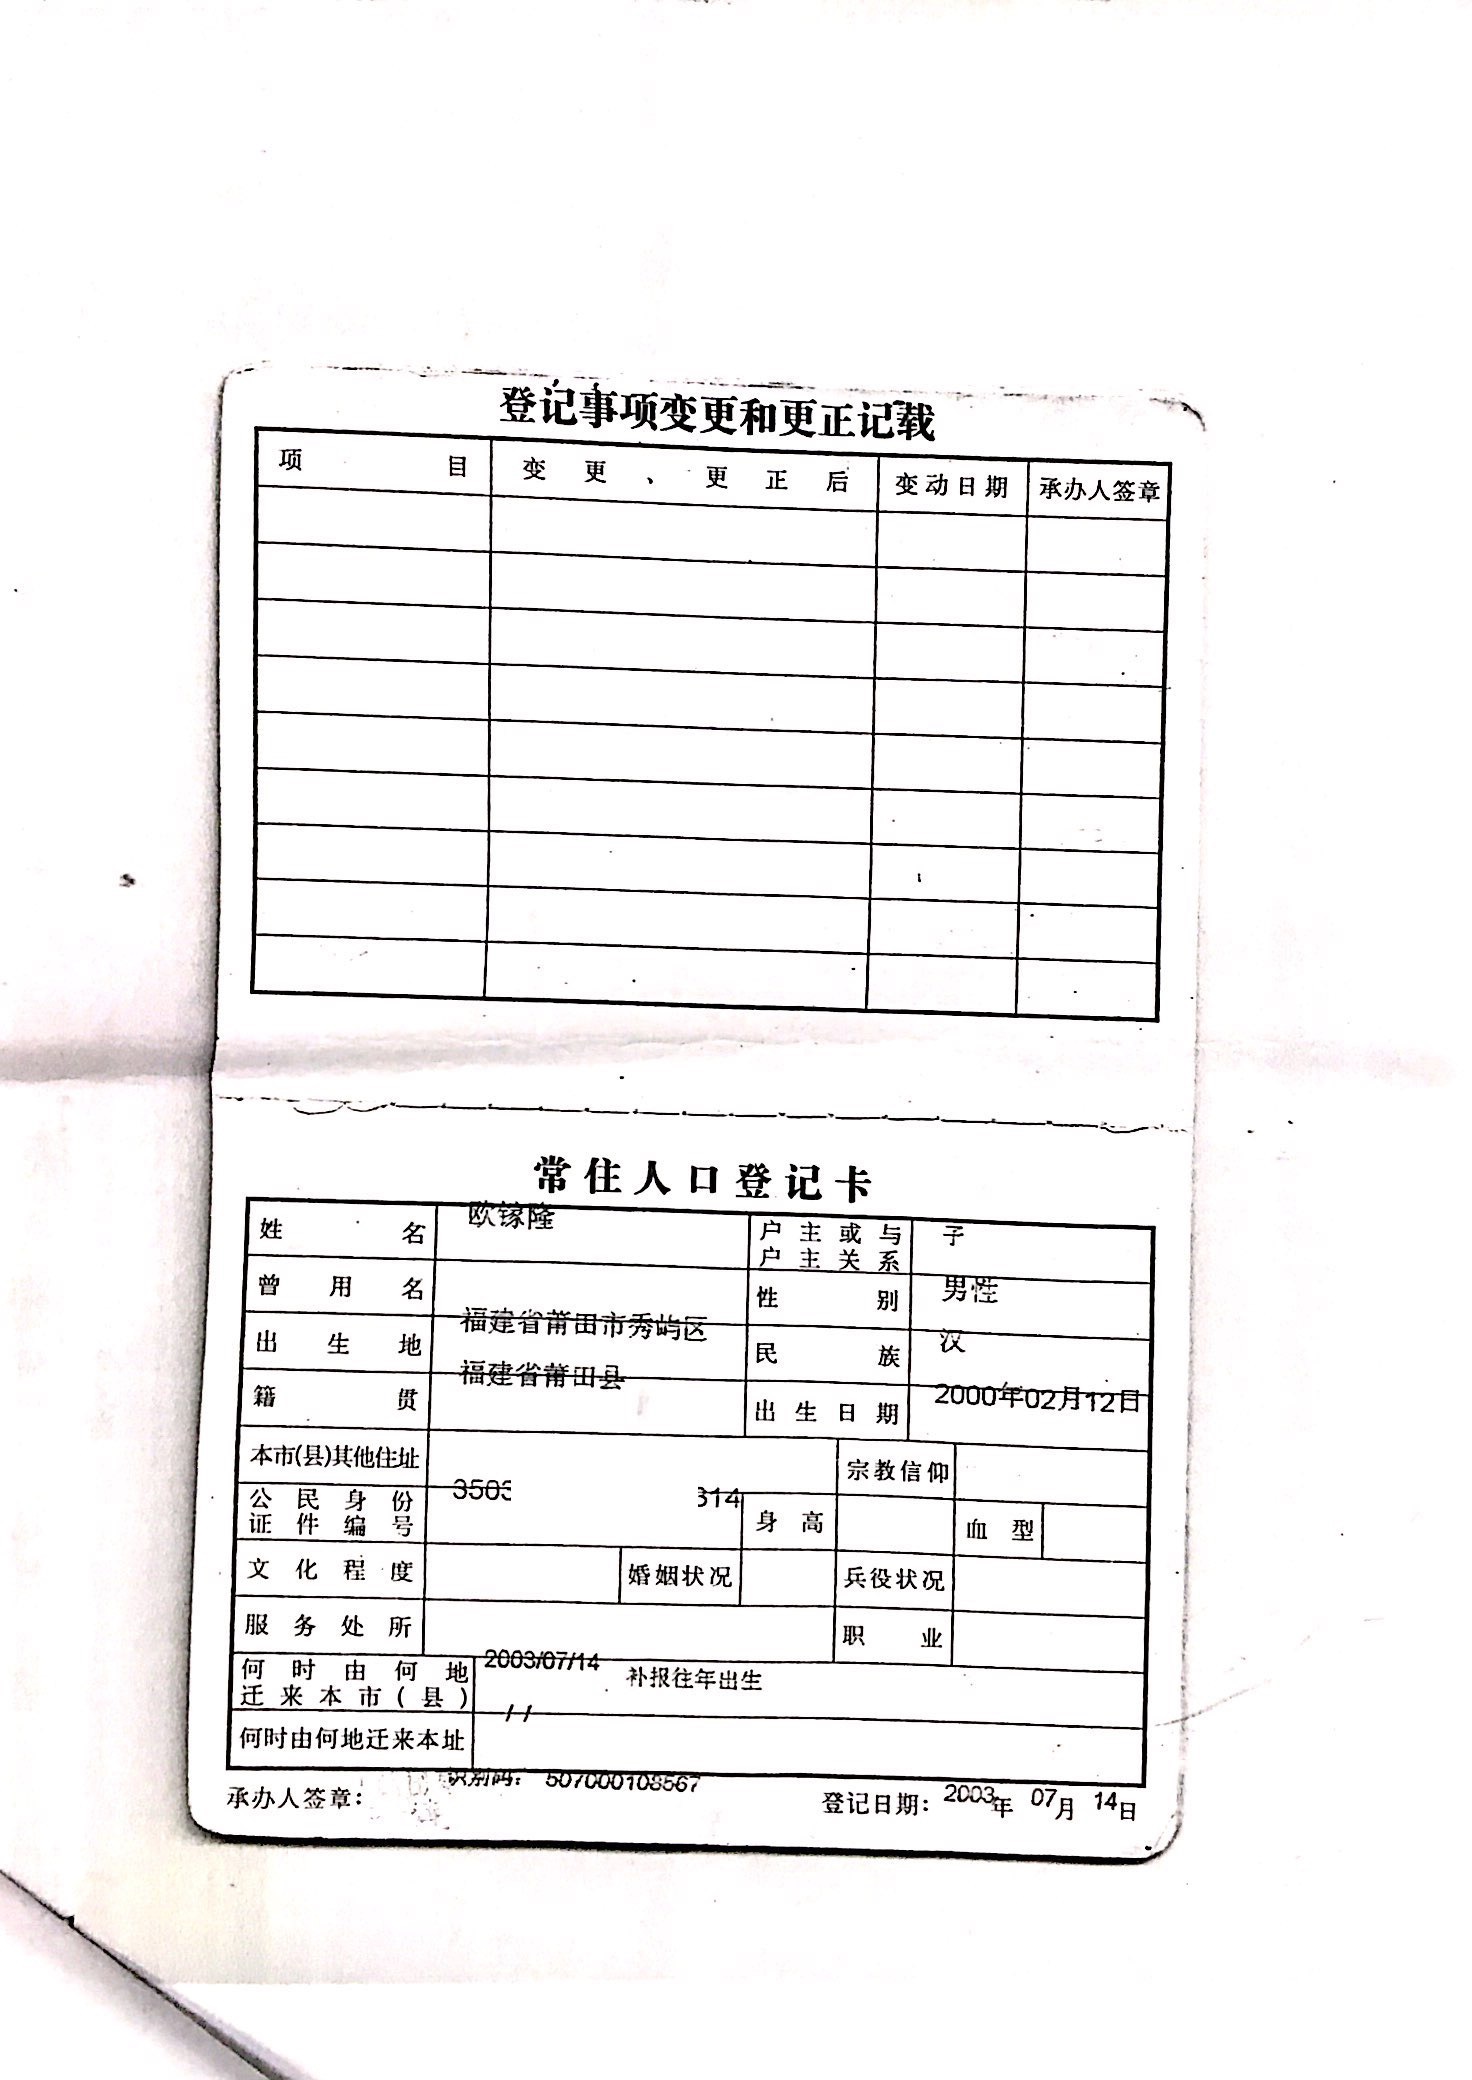 登记事项变更和更正记载
项目 变更、更正后 变动日期 承办人签章
常住人口登记卡
姓名 欧镓隆 户主或与户主关系 子
曾用名 性别 男性
出生地 福建省莆田市秀屿区 民族 汉
籍贯 福建省莆田县 出生日期 2000年02月12日
本市(县)其他住址 宗教信仰
公民身份证件编号 3503 314 身高 血型
文化程度 婚姻状况 兵役状况
服务处所 职业
何时由何地迁来本市(县) 2003/07/14 补报往年出生
何时由何地迁来本址 / /
承办人签章: 识别码: 507000108567 登记日期: 2003年 07月 14日